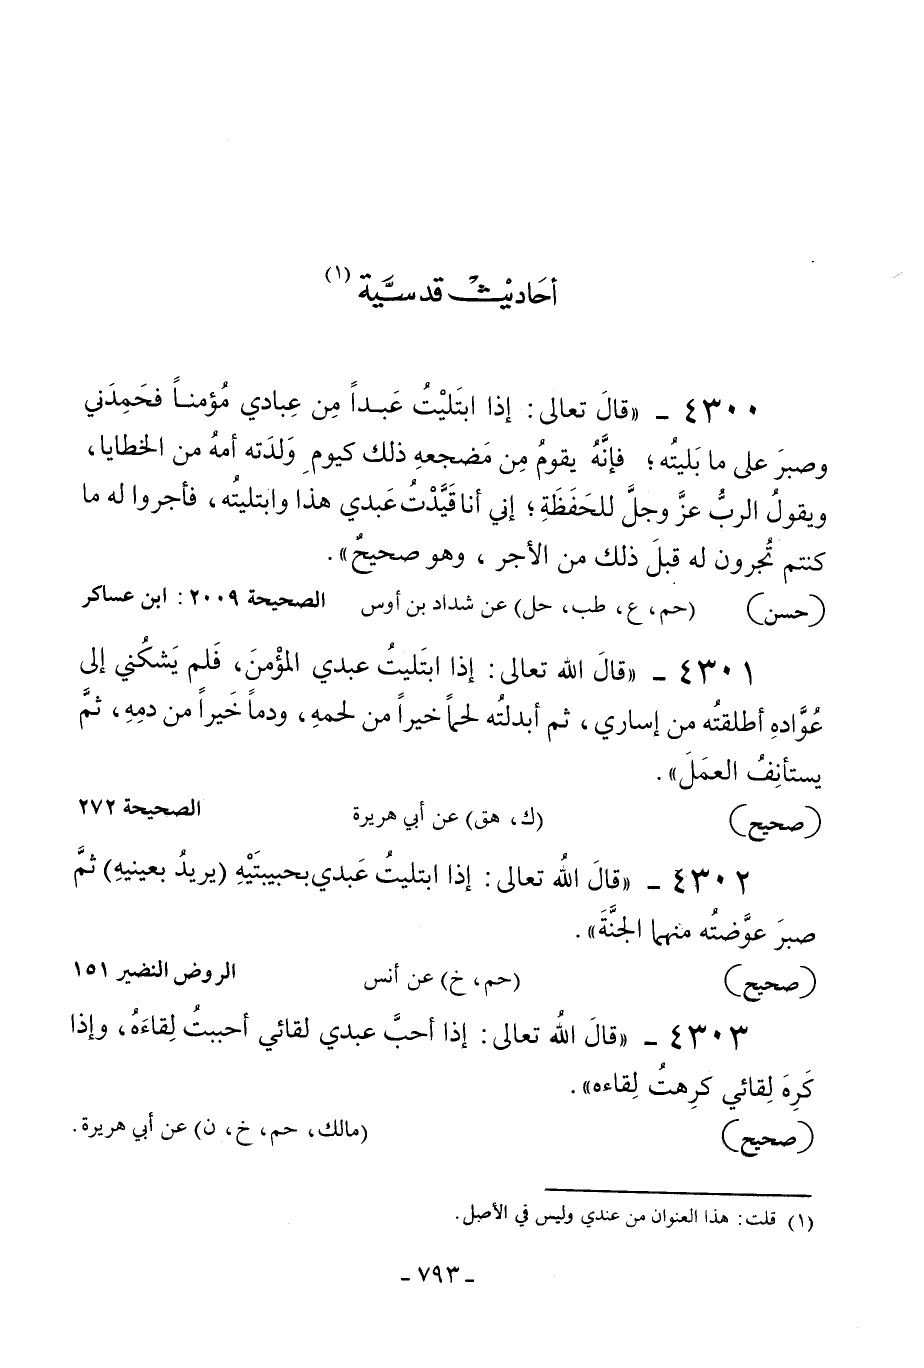 أحَاديثُ قدسيَّة (١)
٤٣٠٠ ـ «قالَ تعالى: إذا ابتَليْتُ عَبداً مِن عِبادي مُؤمناً فحَمِدَني
وصبرَ على ما بَليتُه؛ فإنَّهُ يقومُ مِن مَضجعهِ ذلك كيومِ وَلدَته أمهُ من الخطايا،
ويقولُ الربُّ عزَّ وجلَّ للحَفَظَةِ؛ إني أنا قَيَّدْتُ عَبدي هذا وابتليتُه، فأجروا له ما
كنتم تُجرون له قبلَ ذلك من الأجر، وهو صحيحٌ».
(حسن) (حم، ع، طب، حل) عن شداد بن أوس الصحيحة ٢٠٠٩: ابن عساكر
٤٣٠١ ـ «قالَ الله تعالى: إذا ابتَليتُ عبدي المؤْمنَ، فَلم يَشكُني إلى
عُوَّادهِ أطلقتُه من إساري، ثم أبدلتُه لحماً خيراً من لحمهِ، ودماً خَيراً من دمِهِ، ثمَّ
يستأنِفُ العمَلَ».
(صحيح) (ك، هق) عن أبي هريرة الصحيحة ٢٧٢
٤٣٠٢ ـ «قالَ اللهُ تعالى: إذا ابتليتُ عَبدي بحبيبتَيْهِ (يريدُ بعينيهِ) ثمَّ
صبرَ عوَّضتُه منهما الجنَّةَ».
(صحيح) (حم، خ) عن أنس الروض النضير ١٥١
٤٣٠٣ ـ «قالَ اللهُ تعالى: إذا أحبَّ عبدي لقائي أحببتُ لِقاءَهُ، وإذا
كَرِهَ لِقائي كَرِهتُ لِقاءه».
(صحيح) (مالك، حم، خ، ن) عن أبي هريرة.
(١) قلت: هذا العنوان من عندي وليس في الأصل.
ـ ٧٩٣ ـ